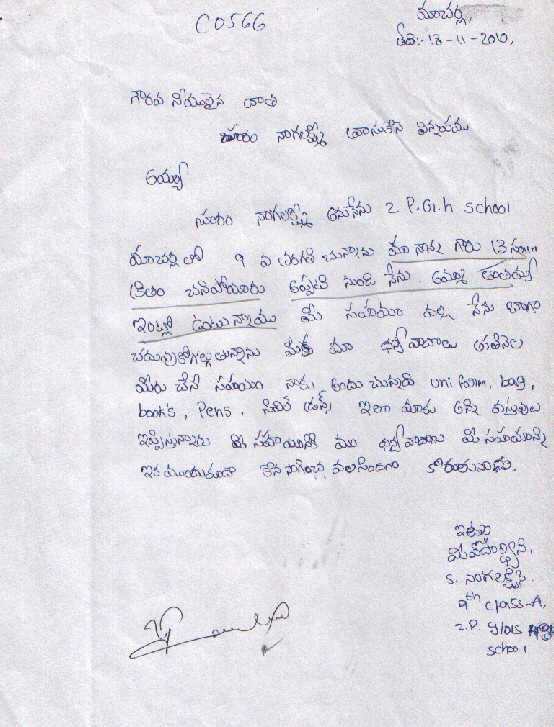 C0566
మాచర్ల,
తేది:- 13-11-2010,
గౌరవ నీయులైన దాత
నాగలక్ష్మి వ్రాసుకొనే విన్నపము
అయ్యా
నాగలక్ష్మి అనునేను Z.P.G.H School
మాచర్ల లో 9 వ తరగతి చదువుచున్నాను మా నాన్న గారు 13 సం॥
క్రితం చనిపోయారు అప్పటి నుండి నేను అమ్మ
ఇంట్లో ఉంటున్నాము మీ సహాయం వల్ల నేను బాగా
చదువుకోగల్గుతున్నాను మీకు మా ధన్యవాదాలు
మీరు చేసే సహాయం నాకు అందుచున్నది uniform, bag,
books, Pens, ఇలా మాకు అన్ని వస్తువులు
ఇప్పిస్తున్నారు ఈ సహాయానికి మా ధన్యవాదాలు మీ సహాయాన్ని
ఇక ముందుకూడా కొనసాగించ వలసిందిగా కోరుతున్నాను.
ఇట్లు
మీ విద్యార్థిని,
S. నాగలక్ష్మి.
9th class-A.
Z.P. Girls High
School